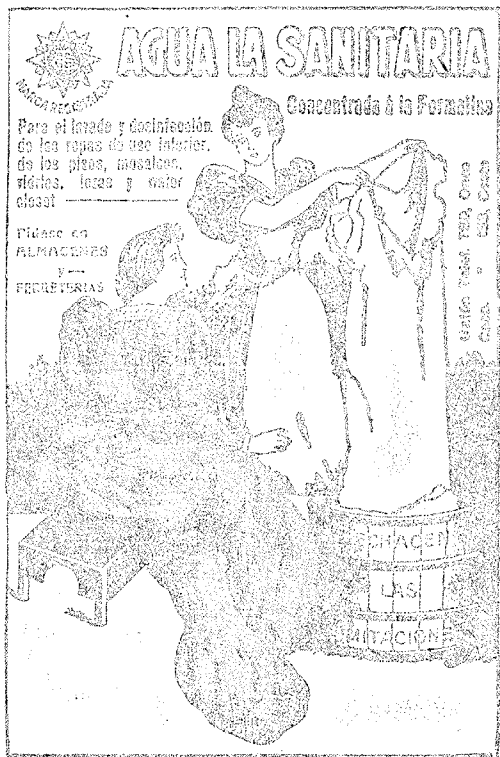 AGUA LA SANITARIA
MARCA REGISTRADA
Concentrada á la Formalina
Para el lavado y desinfección
de las ropas de uso interior,
de los pisos, mosaicos,
vidrios, lozas y water
closet
Pídase en
ALMACENES
y
FERRETERIAS
Unión Telef.
Coop.
ECHACEN
LAS
IMITACIONE